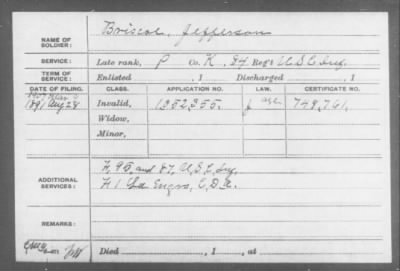 NAME OF SOLDIER: Briscoe, Jefferson
SERVICE: Late rank, P Co. K, 84 Reg't U.S.C. Inf.
TERM OF SERVICE: Enlisted , 1 Discharged , 1
DATE OF FILING. CLASS. APPLICATION NO. LAW. CERTIFICATE NO.
1891 Aug 28 Invalid, 1352,355. age 749,761.
Widow,
Minor,
ADDITIONAL SERVICES: H, 95 and 87, U.S.C. Inf.
H 1 Engrs, C.D.A.
REMARKS:
Died , 1 , at